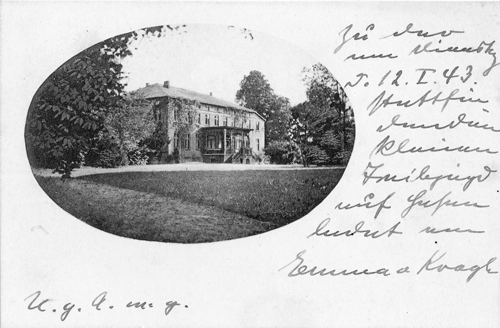 Zu der
am Dienstg
d. 12. I. 43.
stattfin
denden
kleinen
Treibjagd
auf Hasen
ladet ein
Emma v Kragh
U. g. A. w. g.